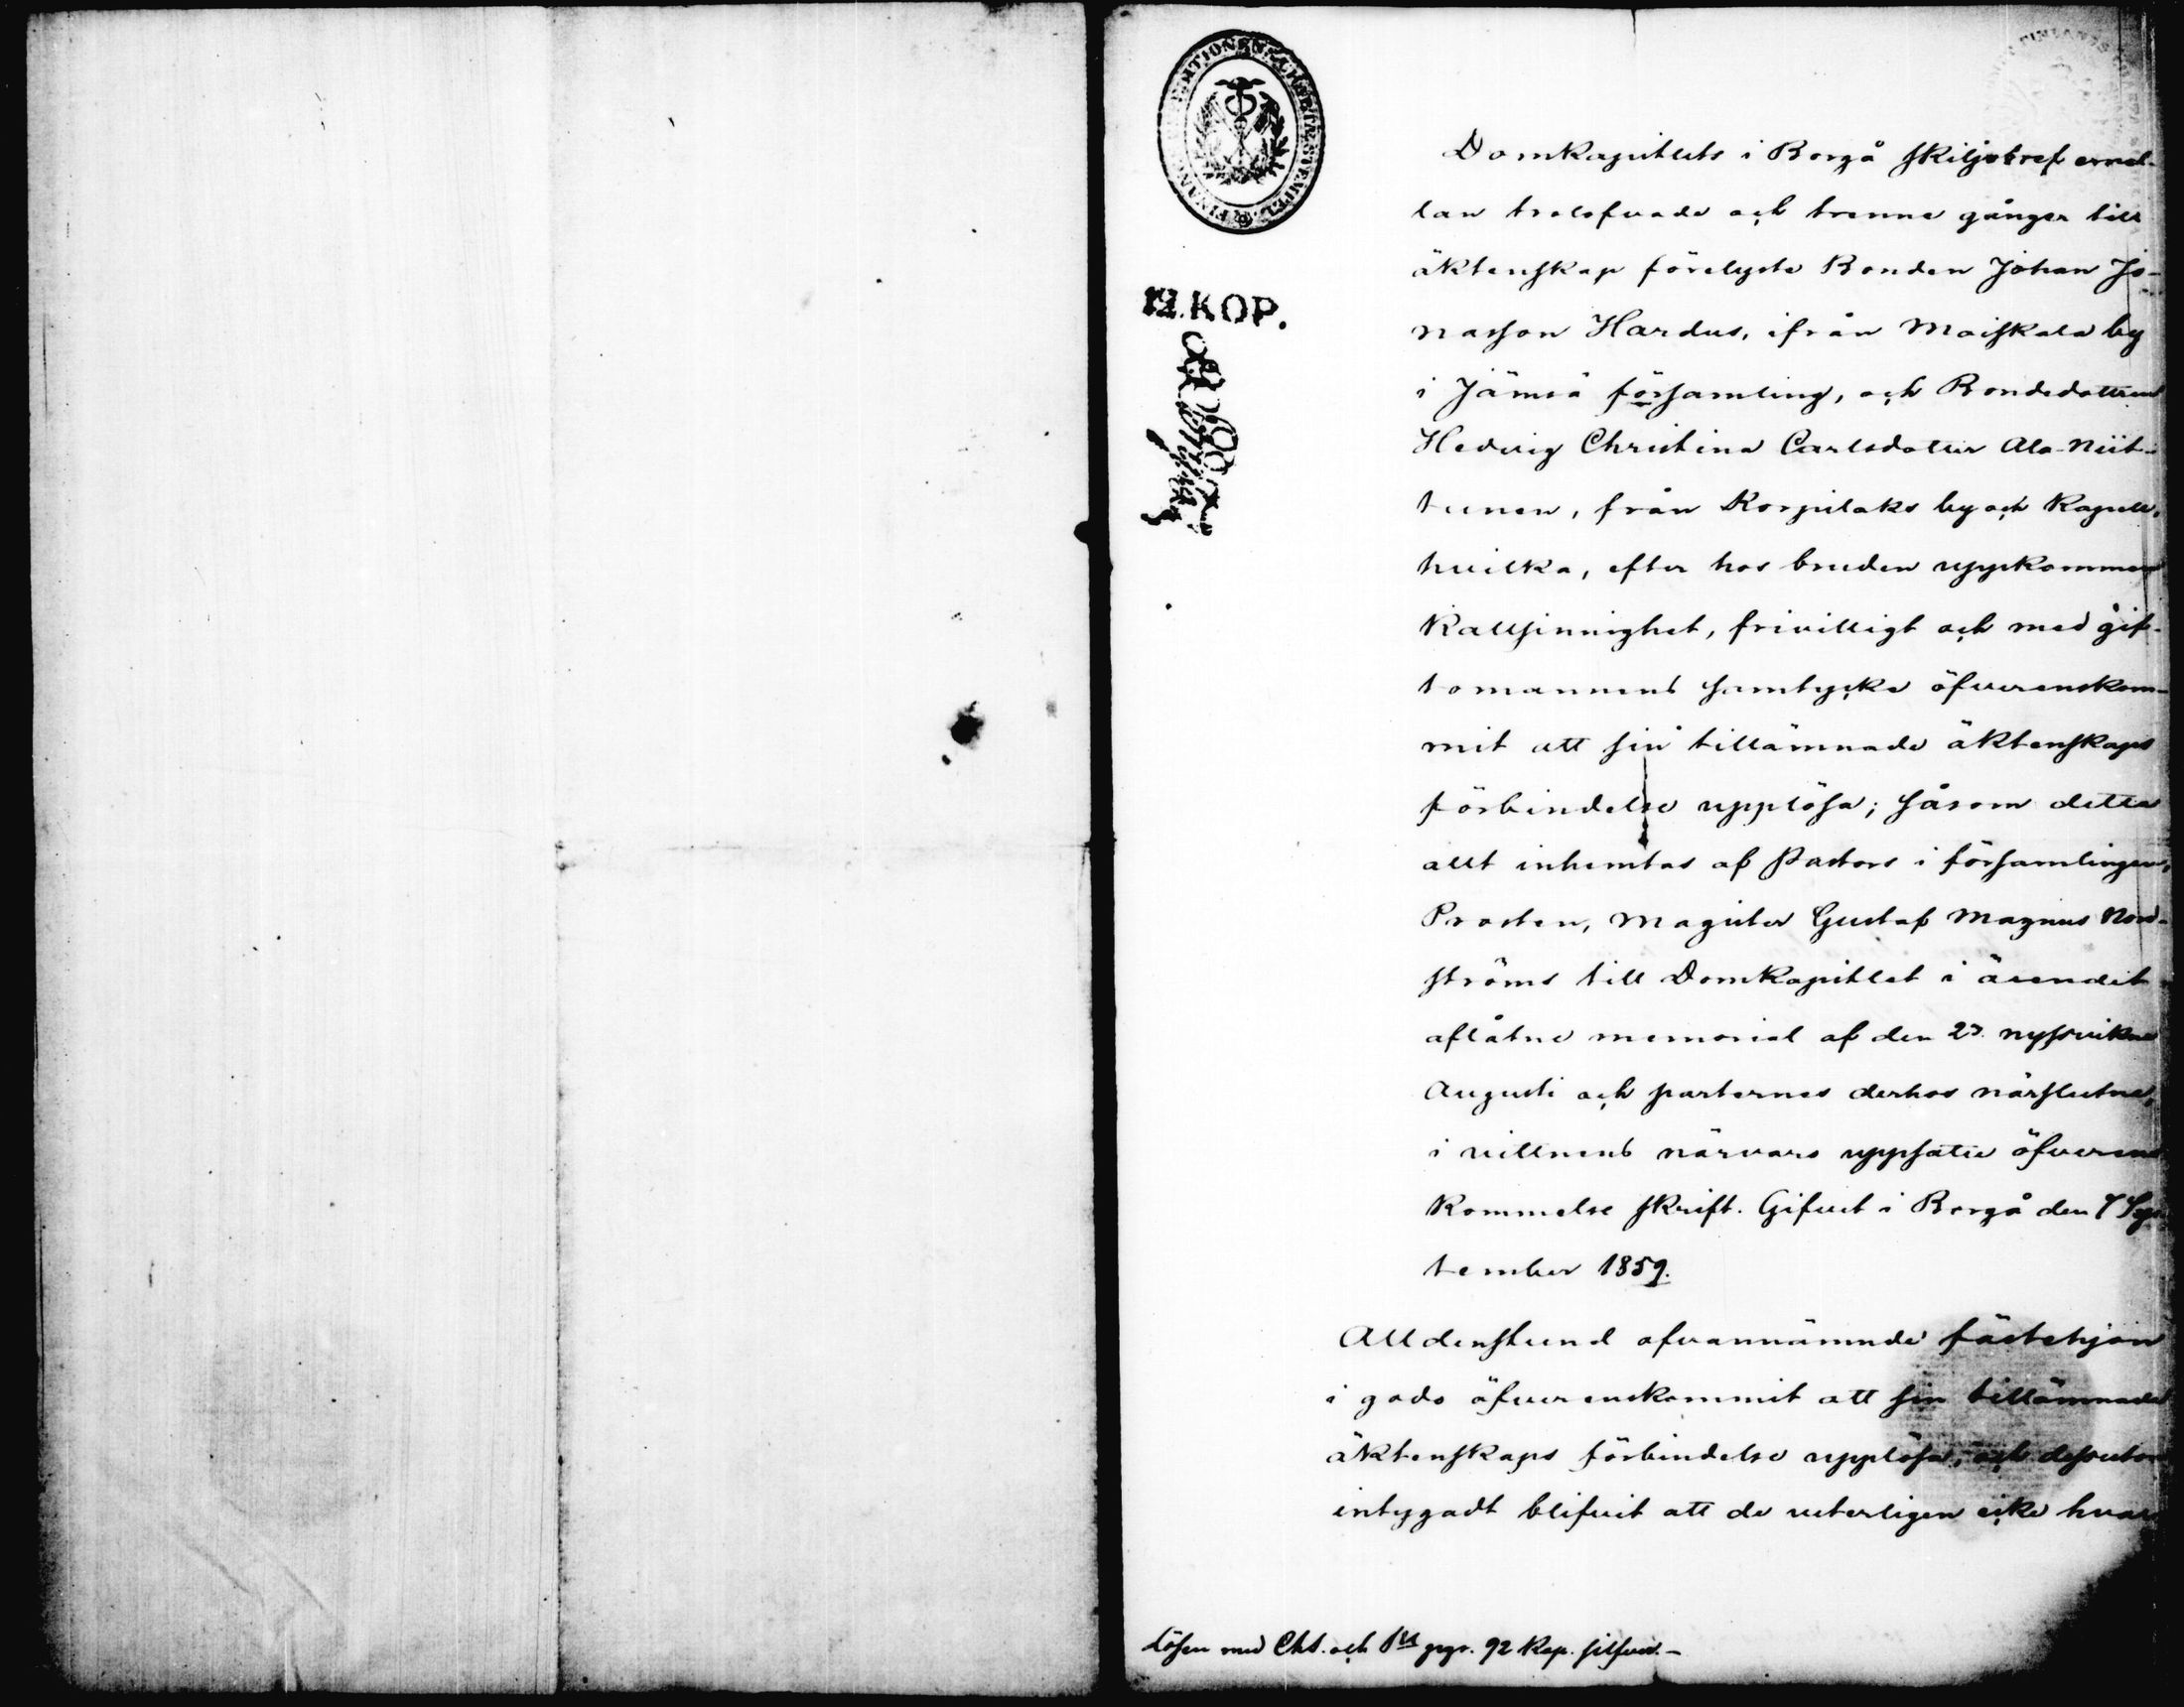 12.KOP.
Domkapitlets i Borgå skiljobref emel-
lan trolofvade och trenne gånger till
äktenskap förelyste Bonden Johan Jo-
nasson Hardus, ifrån Maiskala by
i Jämsä församling, och Bondedottren
Hedvig Christina Carlsdotter Ala-Niit-
tunen, från Korpilaks by och Kapell,
hvilka, efter hos bruden uppkommen
kallsinnighet, frivilligt och med gif-
tomannens samtycke öfverenskom-
mit att sin tillämnade äktenskaps
förbindelse upplösa; såsom detta
allt inhemtas af Pastors i församlingen,
Prosten, Magister Gustaf Magnus Nord-
ströms till Domkapitlet i ärendet
aflåtne memorial af den 23 nyssvikne
Augusti och parternes derhos närslutne,
i vittnens närvaro uppsatte öfverens
kommelse skrift. Gifvet i Borgå den 7 Sep
tember 1859.
Alldenstund ofvannämnde fästehjon
i godo öfverenskommit att sin tillämnade
äktenskaps förbindelse upplösa, och dessutom
intygadt blifvit att de veterligen icke hvar
Lösen med Chs. och ppr. 92 Kop. silfver.-